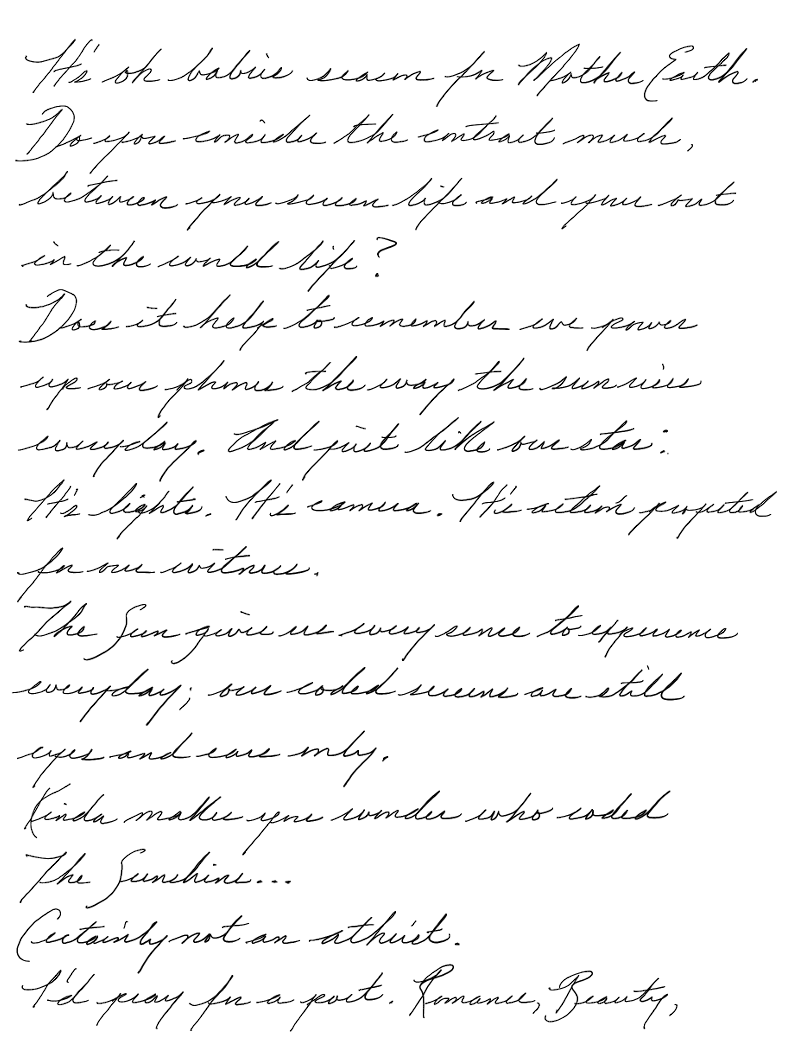 It's oh babies season for Mother Earth.
Do you consider the contrast much,
between your screen life and your out
in the world life?
Does it help to remember we power
up our phones the way the sun rises
everyday. And just like our star:
It's lights. It's camera. It's action projected
for our witness.
The Sun gives us every sense to experience
everyday; our coded screens are still
eyes and ears only.
Kinda makes you wonder who coded
The Sunshine...
Certainly not an atheist.
I'd pray for a poet. Romance, Beauty,